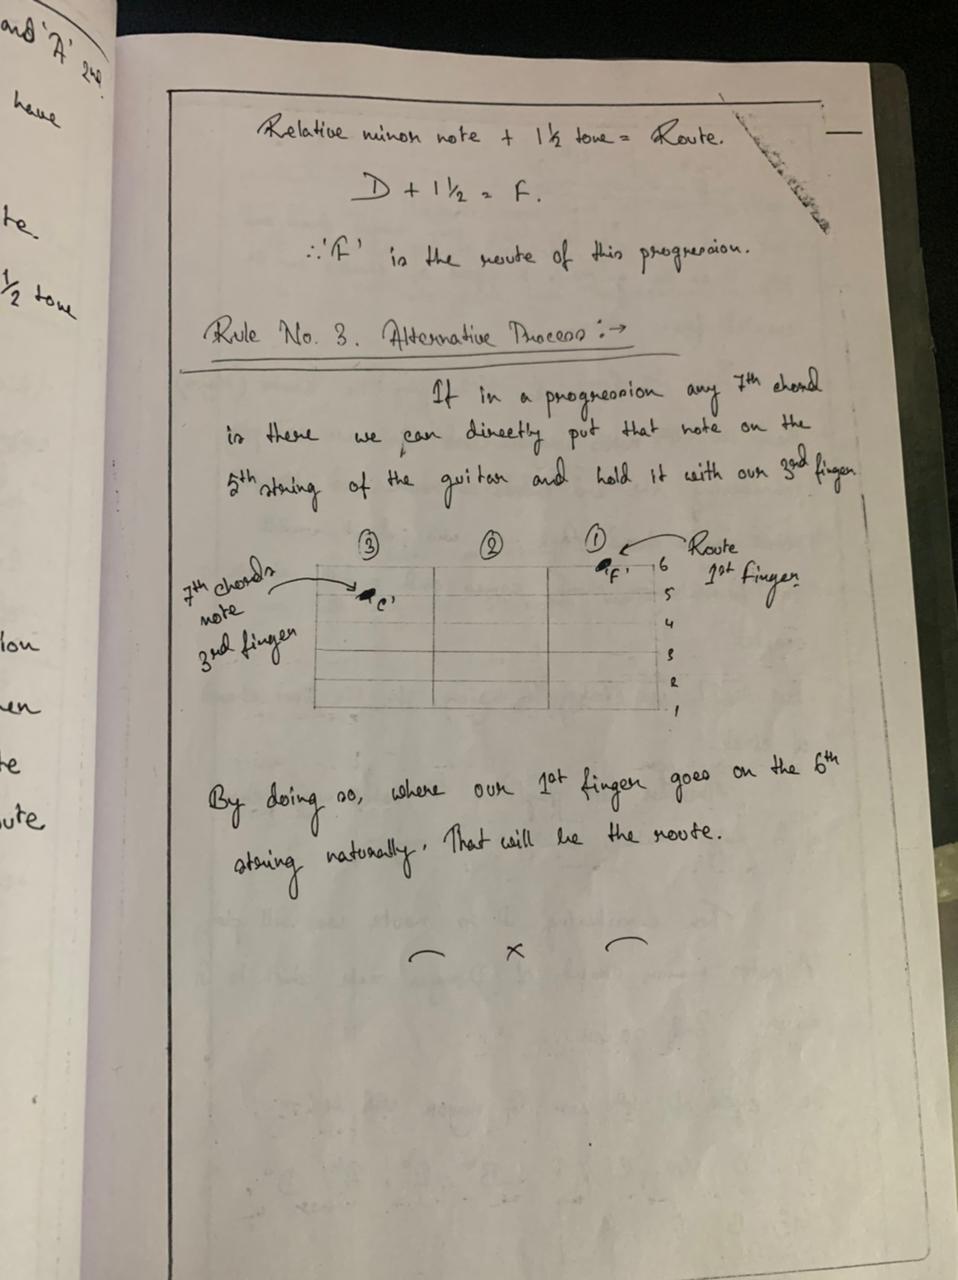 and 'A' 2nd.
have
te.
1/2 tone
ion
en
te
ute
Relative minor note + 1 1/2 tone = Route.
D + 1 1/2 = F.
∴ 'F' is the route of this progression.
Rule No. 3. Alternative Process :→
If in a progression any 7th chord
is there we can directly put that note on the
5th string of the guitar and hold it with our 3rd finger
③ ② ① Route
1st finger
7th chords
note
3rd finger
'F' 6
'C' 5
4
3
2
1
By doing so, where our 1st finger goes on the 6th
string naturally. That will be the route.
x